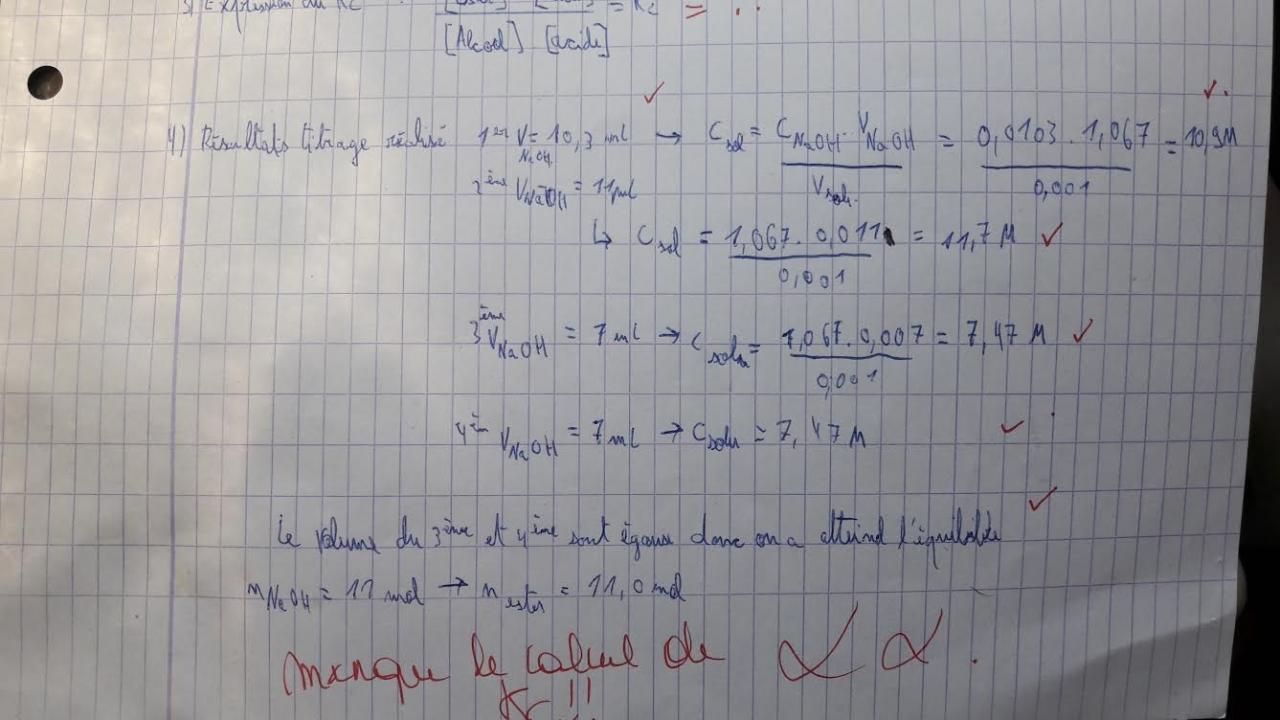 3) Expression du Kc : = Kc = . .
[Alcool] [acide]
4) Résultats titrage réalisé 1er V NaOH = 10,3 ml → C sol = C NaOH . V NaOH / V solu. = 0,0103 . 1,067 / 0,001 = 10,9M
2ème V NaOH = 11 ml
↳ C sol = 1,067 . 0,011 / 0,001 = 11,7 M
3ème V NaOH = 7 ml → C solu = 1,067 . 0,007 / 0,001 = 7,47 M
4è V NaOH = 7 ml → C solu = 7,47 M
Le volume du 3ème et 4ème sont égaux donc on a atteind l'équilibre
n NaOH = 11 mol → n ester = 11,0 mol
manque le calcul de
Kc !!